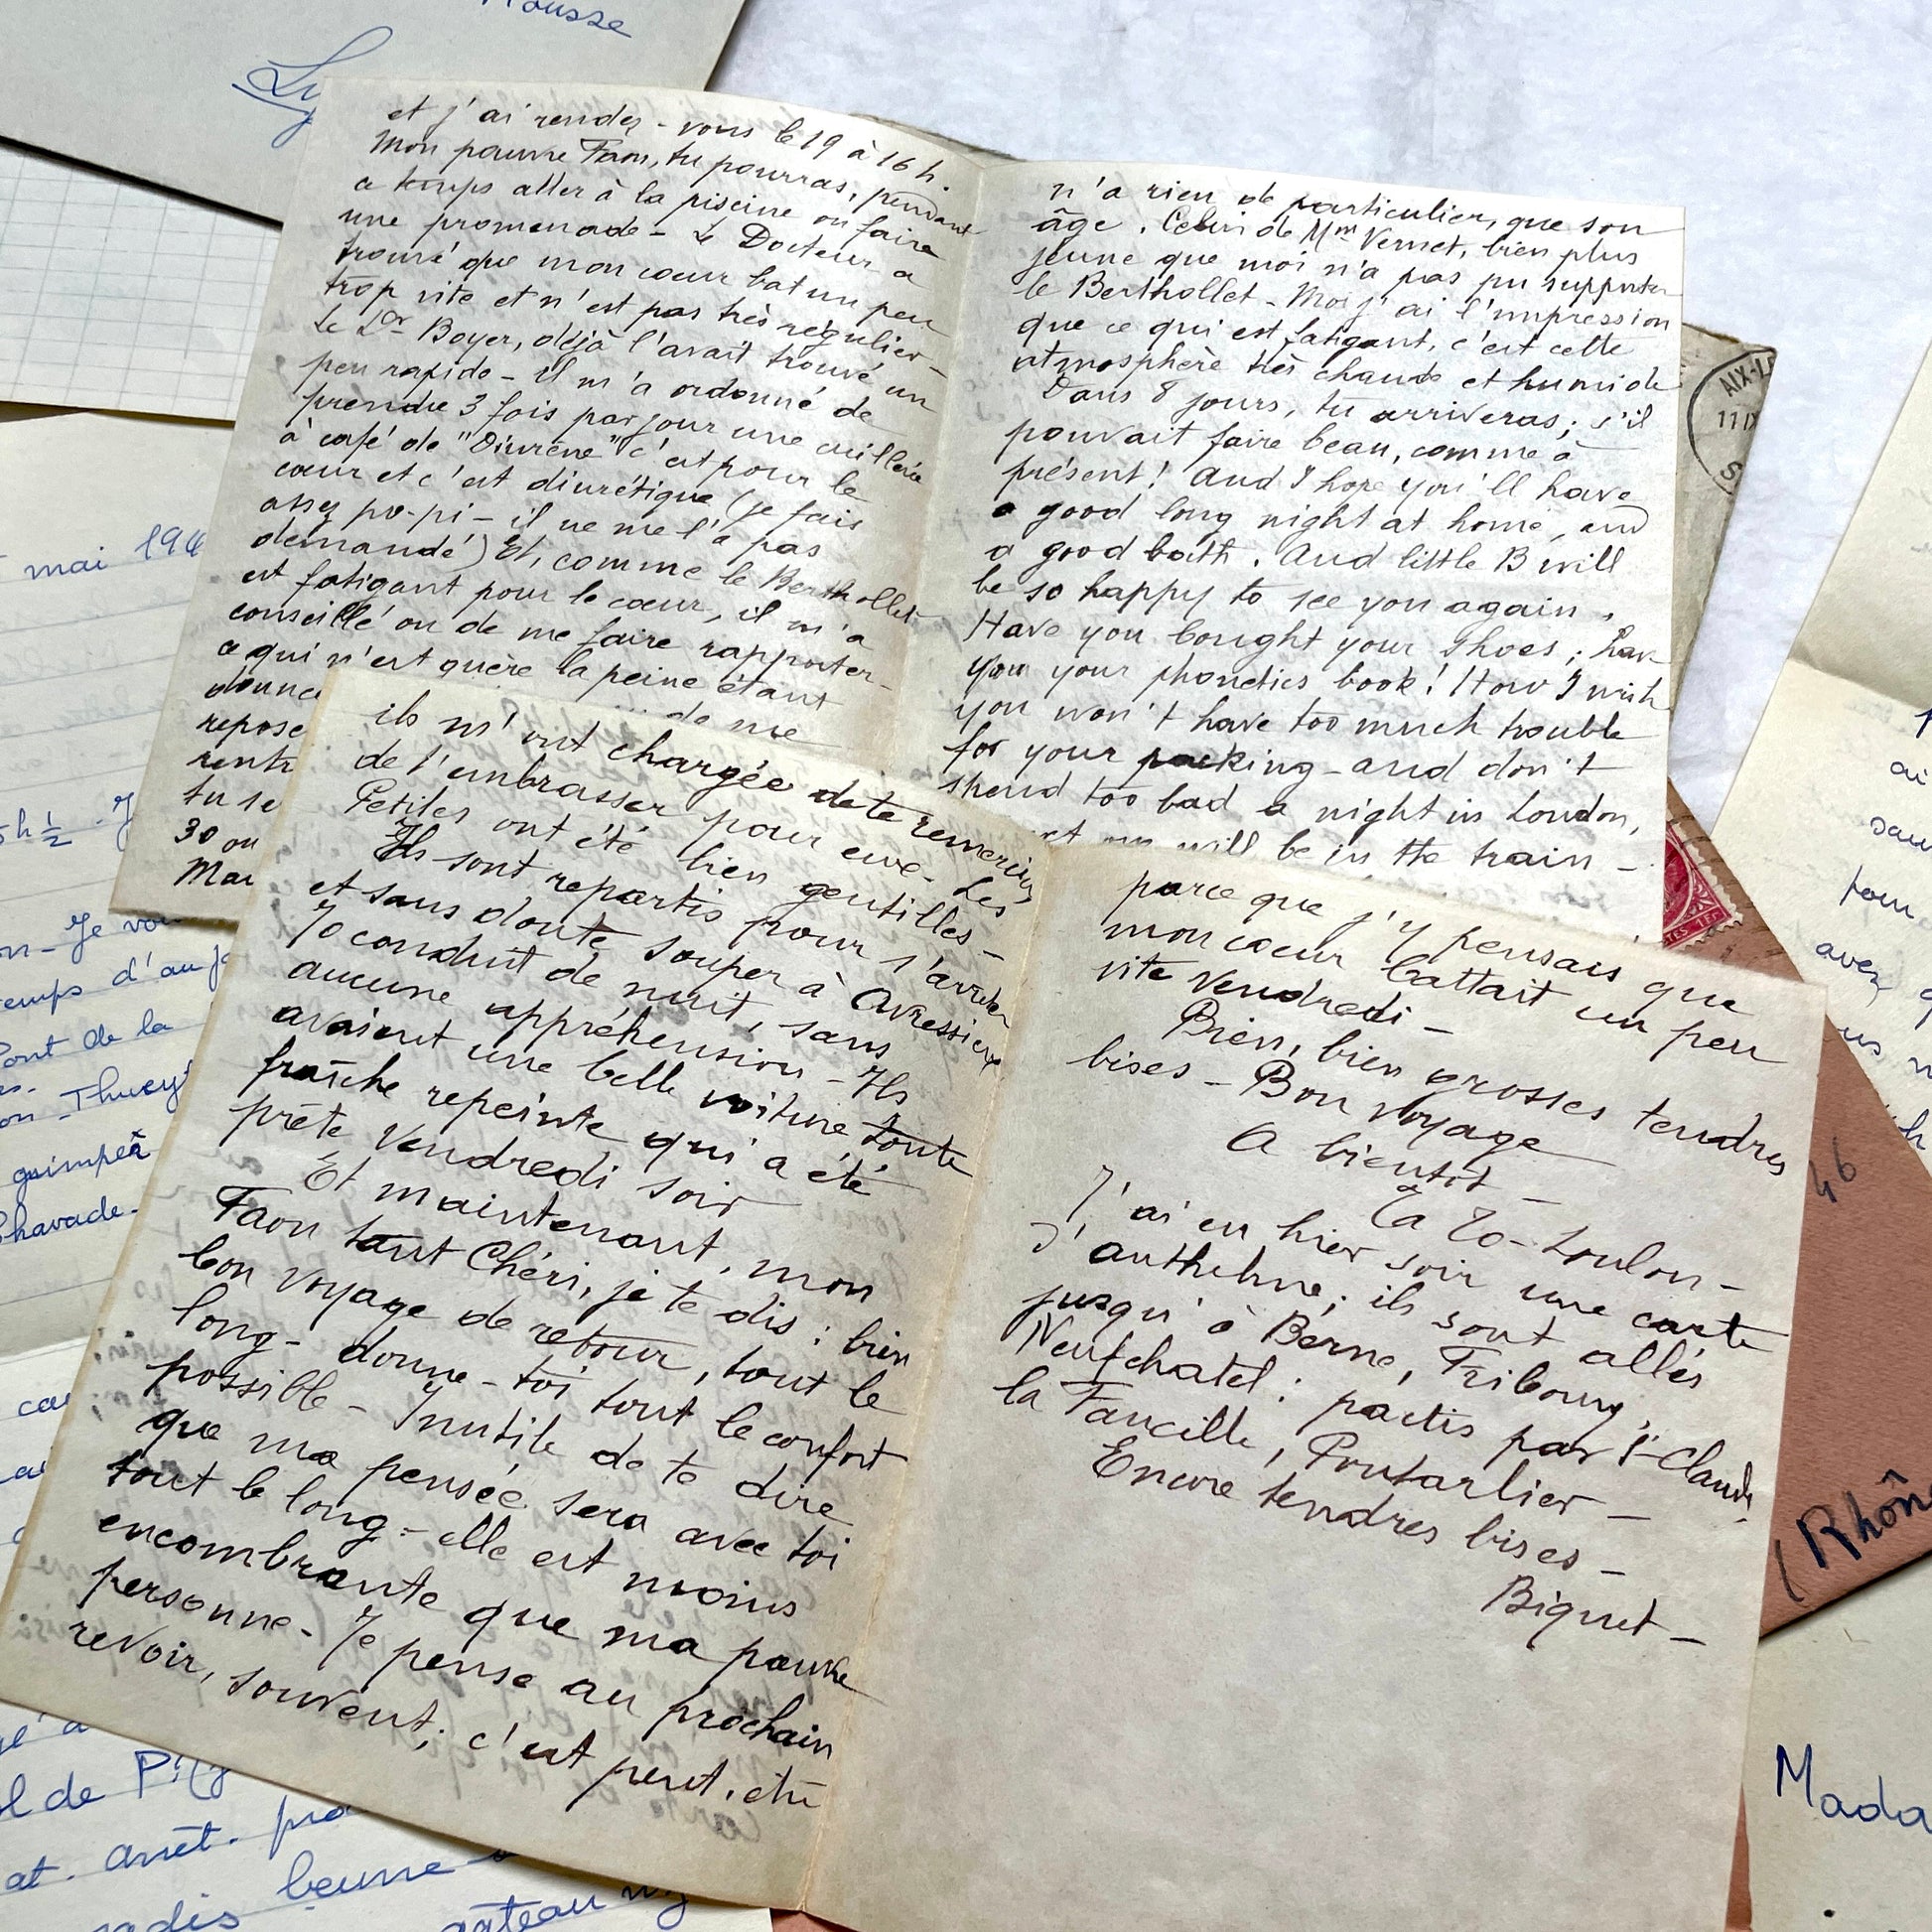 Mousse
Ly
et j'ai rendez-vous le 19 à 16 h.
Mon pauvre Faon, tu pourras, pendant
ce temps aller à la piscine ou faire
une promenade - Le Docteur a
trouvé que mon coeur bat un peu
trop vite et n'est pas très régulier -
Le Dr Boyer, déjà l'avait trouvé un
peu rapide - il m'a ordonné de
prendre 3 fois par jour une cuillerée
à café de "Diurène" c'est pour le
coeur et c'est diurétique (je fais
assez po-pi - il ne me l'a pas
demandé) Et, comme le Berthollet
est fatigant pour le coeur, il m'a
conseillé ou de me faire rapporter -
ce qui n'est guère la peine étant
donné
de me
repose
rentr
tu se
30 ou
Mar
n'a rien de particulier, que son
âge. Celui de Mme Vernet, bien plus
jeune que moi n'a pas pu supporter
le Berthollet - Moi j'ai l'impression
que ce qui est fatigant, c'est cette
atmosphère très chaude et humide
Dans 8 jours, tu arriveras ; s'il
pouvait faire beau, comme à
présent ! And I hope you'll have
a good long night at home, and
a good bath. And little B will
be so happy to see you again.
Have you bought your shoes ; hav
you your phonetics book ! How I wish
you won't have too much trouble
for your packing - and don't
spend too bad a night in London,
will be in the train -
ils m'ont chargée de te remercier
de l'embrasser pour eux - Les
Petites ont été bien gentilles -
Ils sont repartis pour s'arrêter
et sans doute souper à Avressieux
Jo conduit de nuit, sans
aucune appréhension - Ils
avaient une belle voiture toute
fraîche repeinte qui a été
prête Vendredi soir
Et maintenant, mon
Faon tant Chéri, je te dis : bien
bon voyage de retour, tout le
long - donne-toi tout le confort
possible - Inutile de te dire
que ma pensée sera avec toi
tout le long - elle est moins
encombrante que ma pauvre
personne - Je pense au prochain
revoir, souvent ; c'est peut-être
parce que j'y pensais que
mon coeur battait un peu
vite Vendredi -
Bien, bien grosses tendres
bises - Bon voyage
A bientôt -
J'ai eu hier soir une carte
d'Anthelme ; ils sont allés
jusqu'à Berne, Fribourg,
Neufchatel : partis par St Claude,
la Faucille, Pontarlier -
Encore tendres bises -
Biquet -
AIX-LE
11 IX
mai 194
5h ½
on - Je
temps d'au
Pont de la
on - Thueyt
grimper
Chavade -
ol de
at. arrêt.
beurre
gâteau
46
(Rhôn
Mada
sau
pour
avez